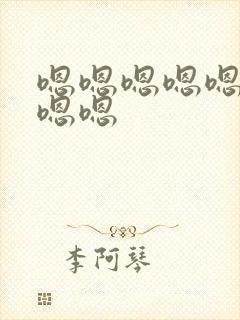 嗯嗯嗯嗯嗯
嗯嗯
李阿琴